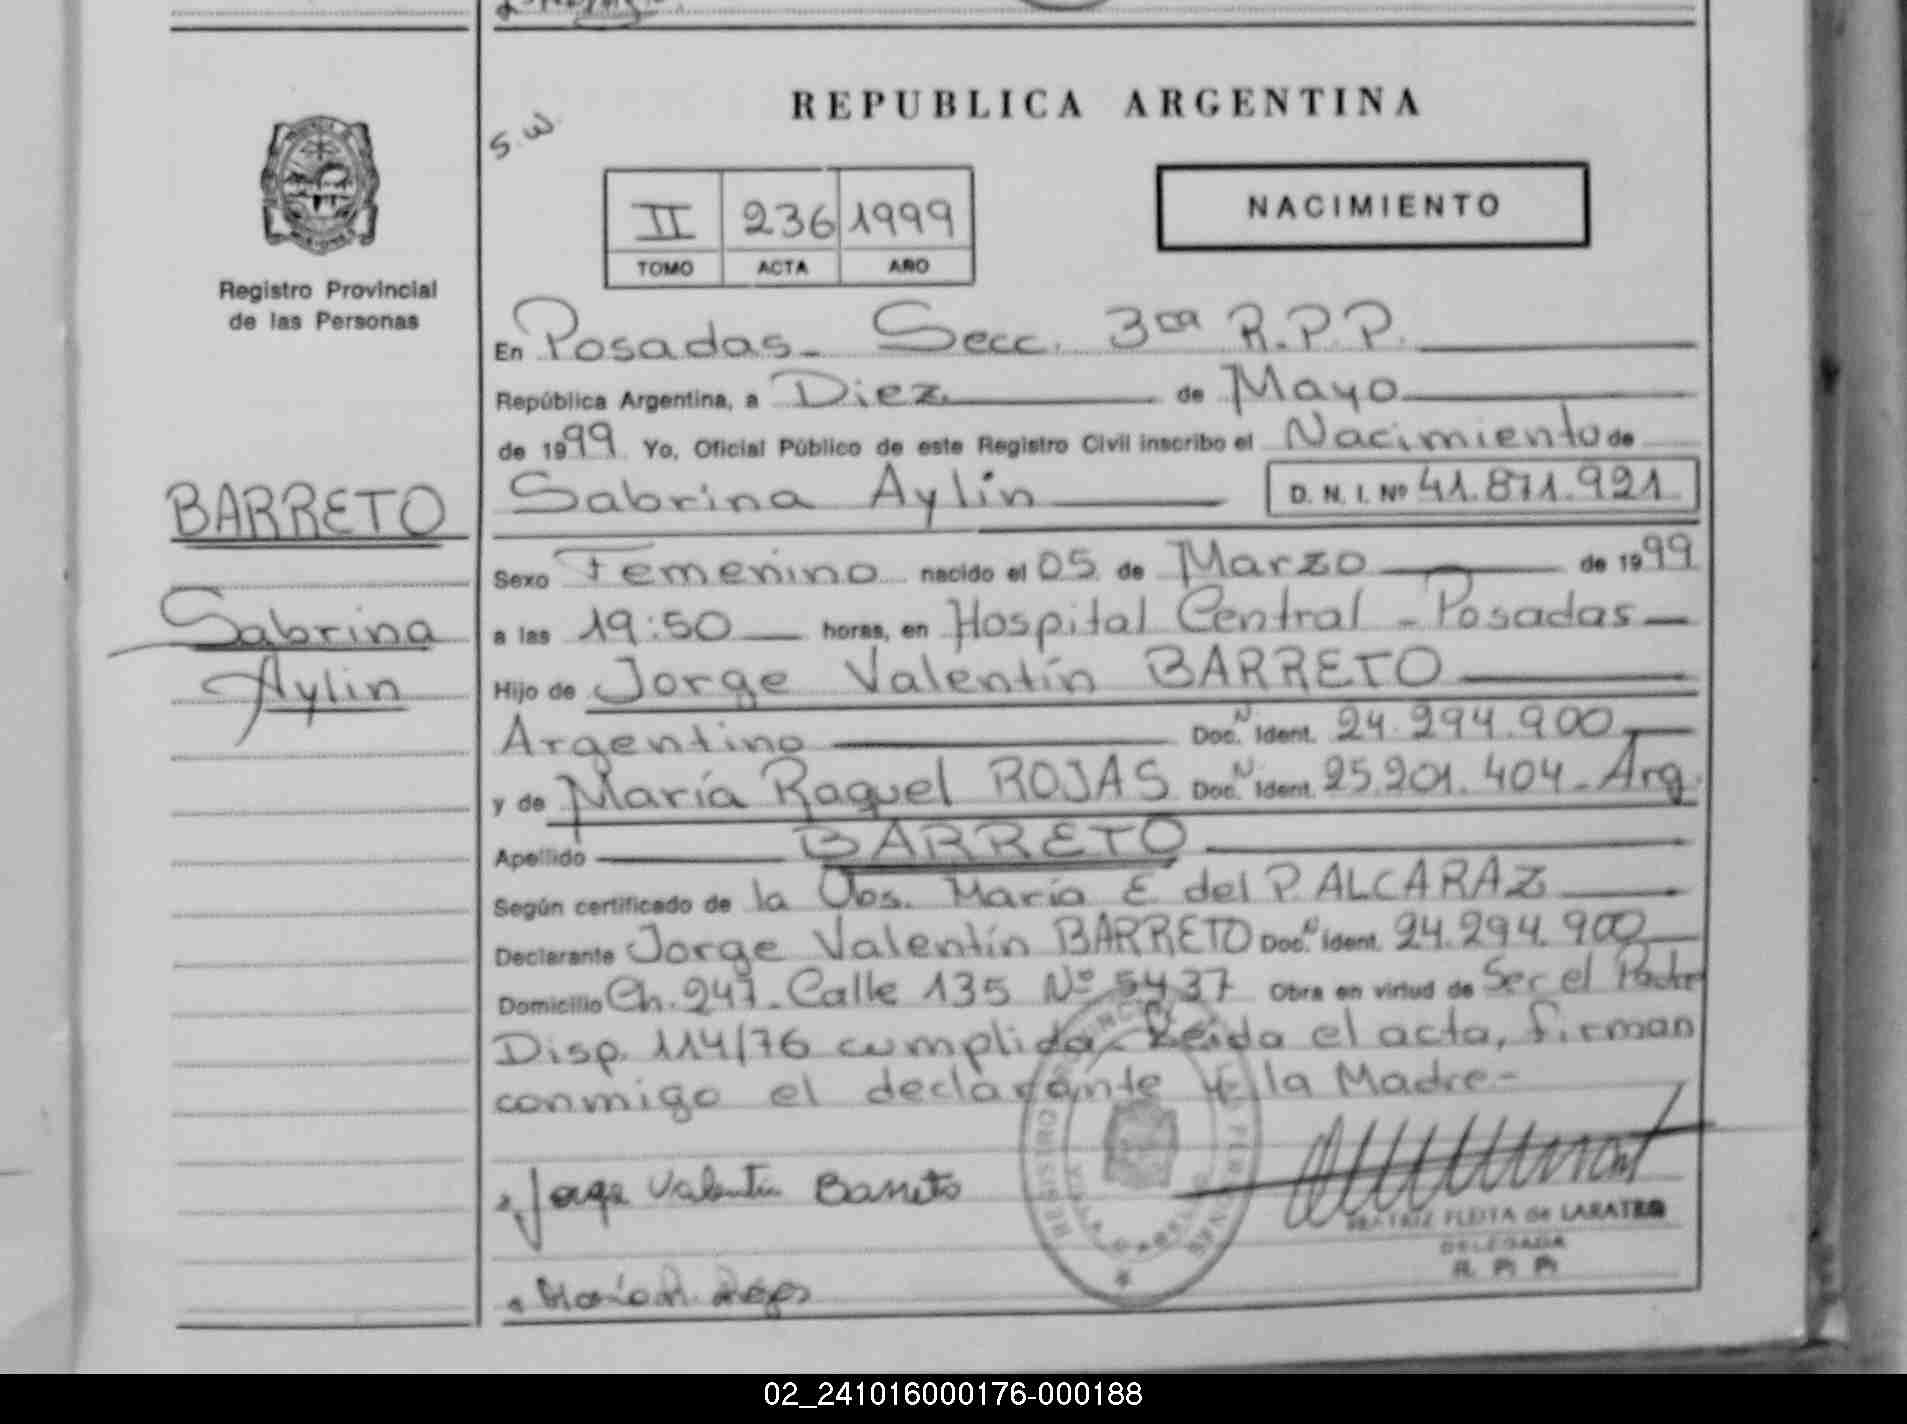 REPUBLICA ARGENTINA
S.W.
NACIMIENTO
II 236 1999
TOMO ACTA AÑO
Registro Provincial
de las Personas
En Posadas - Secc. 3ra R.P.P.
República Argentina, a Diez de Mayo
de 1999 Yo, Oficial Público de este Registro Civil inscribo el Nacimiento de
Sabrina Aylin D. N. I. Nº 41.871.921
BARRETO
Sabrina
Aylin
Sexo Femenino nacido el 05 de Marzo de 1999
a las 19:50 horas, en Hospital Central - Posadas
Hijo de Jorge Valentín BARRETO
Argentino Doc. N Ident. 24.294.900
y de María Raquel ROJAS Doc. N Ident. 25.201.404 - Arg.
Apellido BARRETO
Según certificado de la Obs. María E. del P. ALCARAZ
Declarante Jorge Valentín BARRETO Doc. N Ident. 24.294.900
Domicilio Ch. 247 - Calle 135 Nº 5437 Obra en virtud de Ser el Padre
Disp. 114/76 cumplida - Leida el acta, firman
conmigo el declarante y la Madre -
Jorge Valentín Barreto
BEATRIZ FLEITA de LARATRO
DELEGADA
R. P. P.
María R. Rojas
02_241016000176-000188